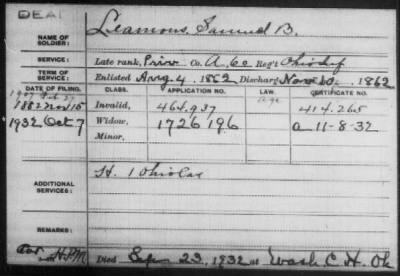 DEAF
NAME OF SOLDIER: Leamons, Samuel B.
SERVICE: Late rank, Priv Co. A, 60 Reg't Ohio Inf
TERM OF SERVICE: Enlisted Aug. 4, 1862 Discharged Nov 10, 1862
DATE OF FILING. CLASS. APPLICATION NO. LAW. CERTIFICATE NO.
1907
1882 Nov 15 Invalid, 464.937 age 414.265
1932 Oct 7 Widow, 1726196 a 11-8-32
Minor,
ADDITIONAL SERVICES: H. 1 Ohio Cav
REMARKS:
Died Sep 23, 1932 at Wash. C. H. Oh